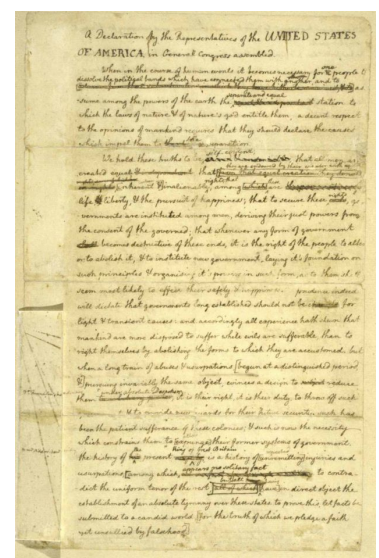 A Declaration by the Representatives of the UNITED STATES
OF AMERICA, in General Congress assembled.
When in the course of human events it becomes necessary for one people to
dissolve the political bands which have connected them with another, and to
assume among the powers of the earth the separate and equal station to
which the laws of nature & of nature's god entitle them, a decent respect
to the opinions of mankind requires that they should declare the causes
which impel them to the separation.
We hold these truths to be self-evident that all men are
created equal
inherent & inalienable among
life & liberty, & the pursuit of happiness; that to secure these rights, go-
vernments are instituted among men, deriving their just powers from
the consent of the governed; that whenever any form of government
becomes destructive of these ends, it is the right of the people to alter
or to abolish it, & to institute new government, laying it's foundation on
such principles & organising it's powers in such form, as to them shall
seem most likely to effect their safety & happiness. prudence indeed
will dictate that governments long established should not be changed for
light & transient causes: and accordingly all experience hath shewn that
mankind are more disposed to suffer while evils are sufferable, than to
right themselves by abolishing the forms to which they are accustomed. but
when a long train of abuses & usurpations [begun at a distinguished period,
&] pursuing invariably the same object, evinces a design to reduce
them under absolute Despotism, it is their right, it is their duty, to throw off such
& to provide new guards for their future security. such has
been the patient sufferance of these colonies; & such is now the necessity
which constrains them to [expunge] their former systems of government.
the history of the present King of Great Britain is a history of [unremitting] injuries and
usurpations, [among which, appears no solitary fact to contra-
dict the uniform tenor of the rest, all of which] have in direct object the
establishment of an absolute tyranny over these states. to prove this, let facts be
submitted to a candid world, [for the truth of which we pledge a faith
yet unsullied by falsehood]